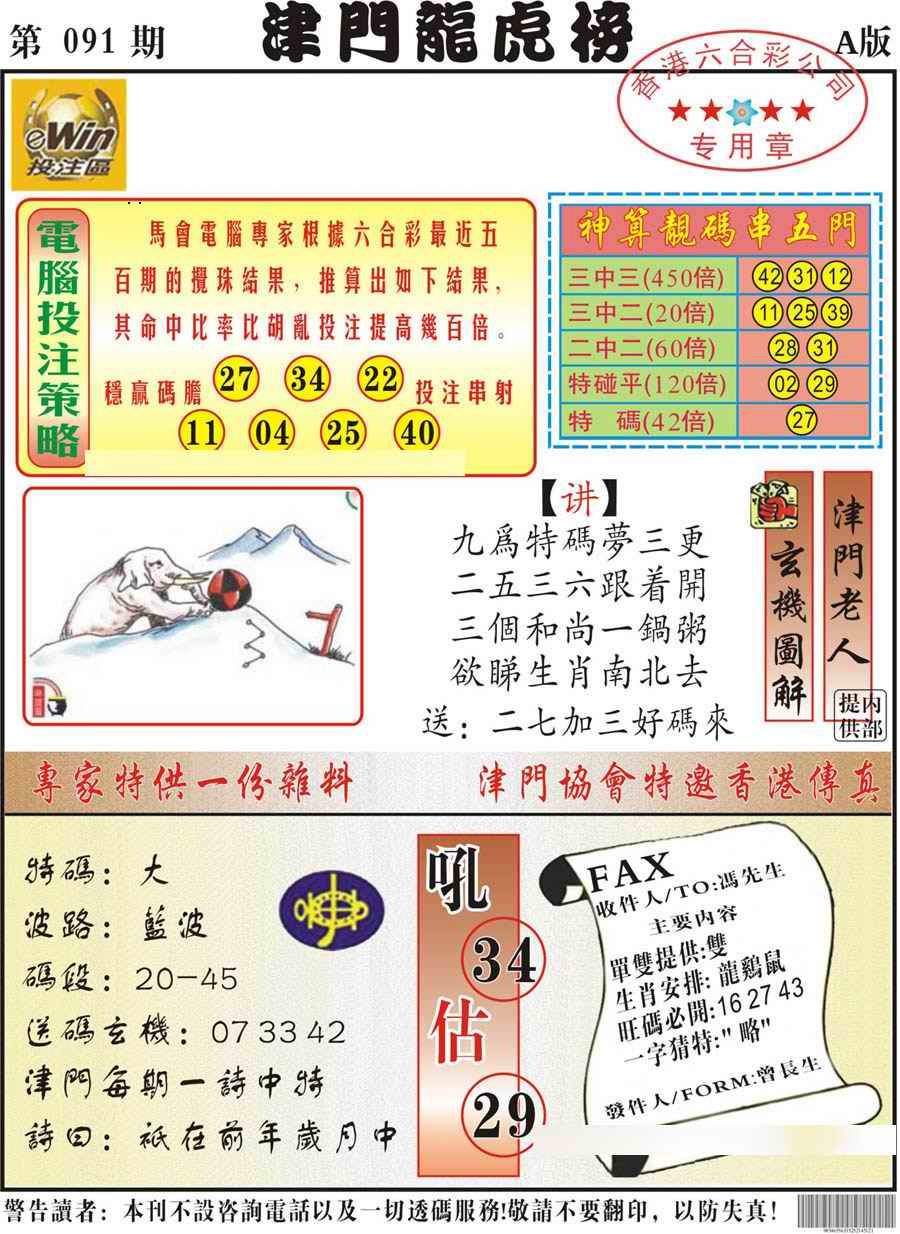 第 091 期
津門龍虎榜
A版
香港六合彩公司
专用章
eWin
投注區
電腦投注策略
馬會電腦專家根據六合彩最近五
百期的攪珠結果，推算出如下結果，
其命中比率比胡亂投注提高幾百倍。
穩贏碼膽 27 34 22 投注串射
11 04 25 40
神算靚碼串五門
三中三(450倍) 42 31 12
三中二(20倍) 11 25 39
二中二(60倍) 28 31
特碰平(120倍) 02 29
特 碼(42倍) 27
【讲】
九爲特碼夢三更
二五三六跟着開
三個和尚一鍋粥
欲睇生肖南北去
送：二七加三好碼來
玄機圖解
津門老人
内部提供
專家特供一份雜料
津門協會特邀香港傳真
特碼：大
波路：藍波
碼段：20-45
送碼玄機：07 33 42
津門每期一詩中特
詩曰：祇在前年歲月中
吼
34
估
29
FAX
收件人/TO:馮先生
主要内容
單雙提供:雙
生肖安排:龍鷄鼠
旺碼必開:16 27 43
一字猜特:"略"
發件人/FORM:曾長生
警告讀者：本刊不設咨詢電話以及一切透碼服務!敬請不要翻印，以防失真！